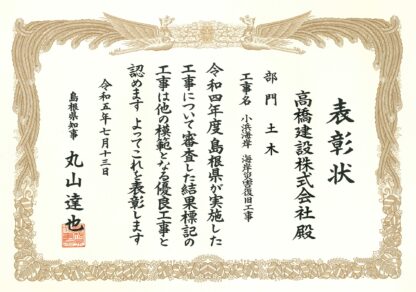 表彰状
高橋建設株式会社 殿
部門 土木
工事名 小浜海岸 海岸災害復旧工事
令和四年度 島根県が実施した
工事について審査した結果標記の
工事は他の模範となる優良工事と
認めます よってこれを表彰します
令和五年七月十三日
島根県知事 丸山達也